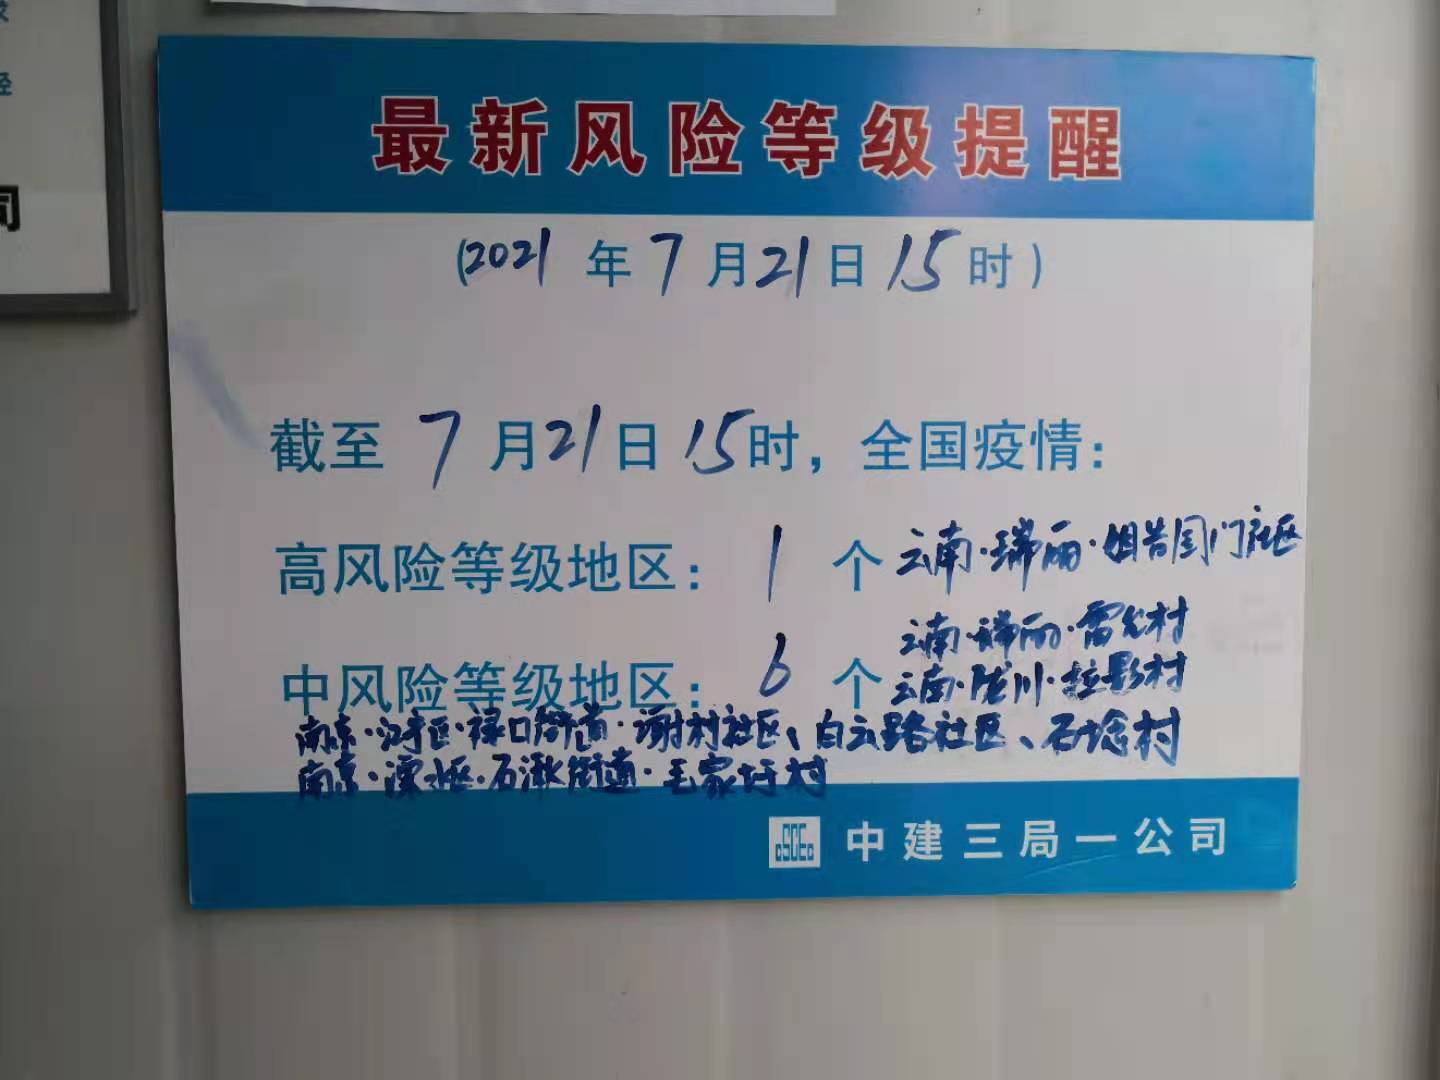 最新风险等级提醒
(2021年7月21日15时)
截至7月21日15时，全国疫情：
高风险等级地区：1个 云南·瑞丽·姐告国门社区
云南·瑞丽·雷允村
中风险等级地区：6个 云南·陇川·拉影村
南京·江宁区·禄口街道·谢村社区、白云路社区、石埝村
南京·溧水区·石湫街道·毛家圩村
CSCEC 中建三局一公司
司